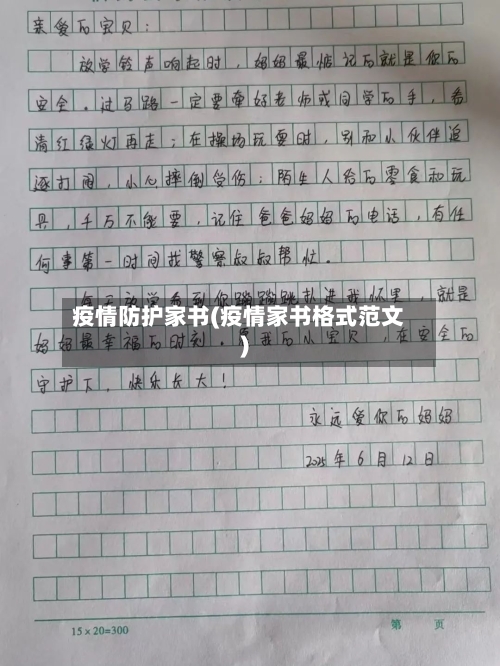 亲爱的宝贝：
放学铃声响起时，妈妈最惦记的就是你的
安全。过马路一定要牵好老师或同学的手，看
清红绿灯再走；在操场玩耍时，别和小伙伴追
逐打闹，小心摔倒受伤；陌生人给的零食和玩
具，千万不能要，记住爸爸妈妈的电话，有任
何事第一时间找警察叔叔帮忙。
每天放学看到你蹦蹦跳跳扑进我怀里，就是
疫情防护家书(疫情家书格式范文
)
妈妈最幸福的时刻。愿我的小宝贝，在安全的
守护下，快乐长大！
永远爱你的妈妈
2025年6月12日
15×20=300
第 页